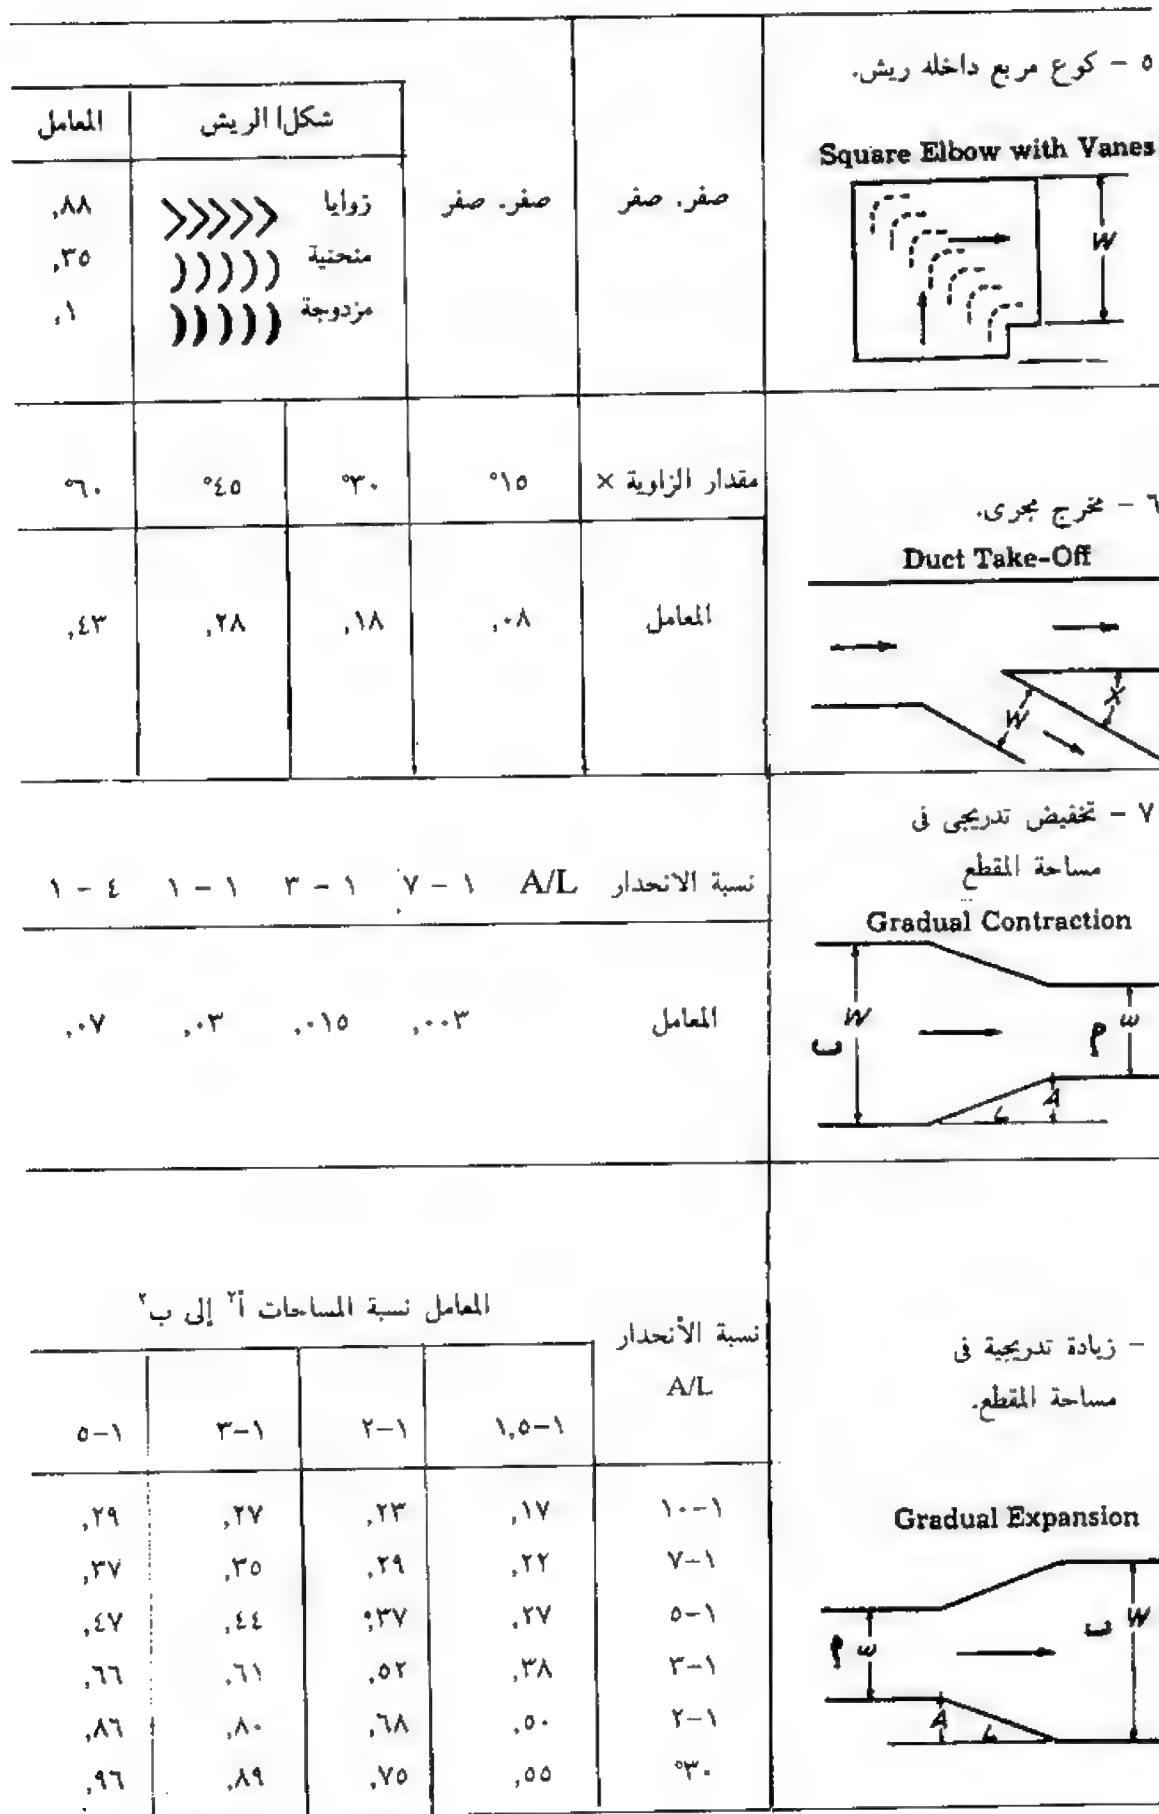 ٥ - كوع مربع داخله ريش.
Square Elbow with Vanes
W
صفر. صفر
صفر. صفر
شكل الريش
المعامل
زوايا
,٨٨
منحنية
,٣٥
مزدوجة
,١
٦ - مخرج مجرى.
Duct Take-Off
W
X
مقدار الزاوية ×
١٥°
٣٠°
٤٥°
٦٠°
المعامل
,٠٨
,١٨
,٢٨
,٤٣
٧ - تخفيض تدريجى فى
مساحة المقطع
Gradual Contraction
W
ب
أ
w
A
L
نسبة الانحدار A/L
١ - ٧
١ - ٣
١ - ١
٤ - ١
المعامل
,٠٠٣
,٠١٥
,٠٣
,٠٧
- زيادة تدريجية فى
مساحة المقطع.
Gradual Expansion
أ
w
ب
W
A
L
نسبة الأنحدار
A/L
المعامل نسبة المساحات أ٢ إلى ب٢
١-١,٥
١-٢
١-٣
١-٥
١-١٠
,١٧
,٢٣
,٢٧
,٢٩
١-٧
,٢٢
,٢٩
,٣٥
,٣٧
١-٥
,٢٧
,٣٧
,٤٤
,٤٧
١-٣
,٣٨
,٥٢
,٦١
,٦٦
١-٢
,٥٠
,٦٨
,٨٠
,٨٦
٣٠°
,٥٥
,٧٥
,٨٩
,٩٦